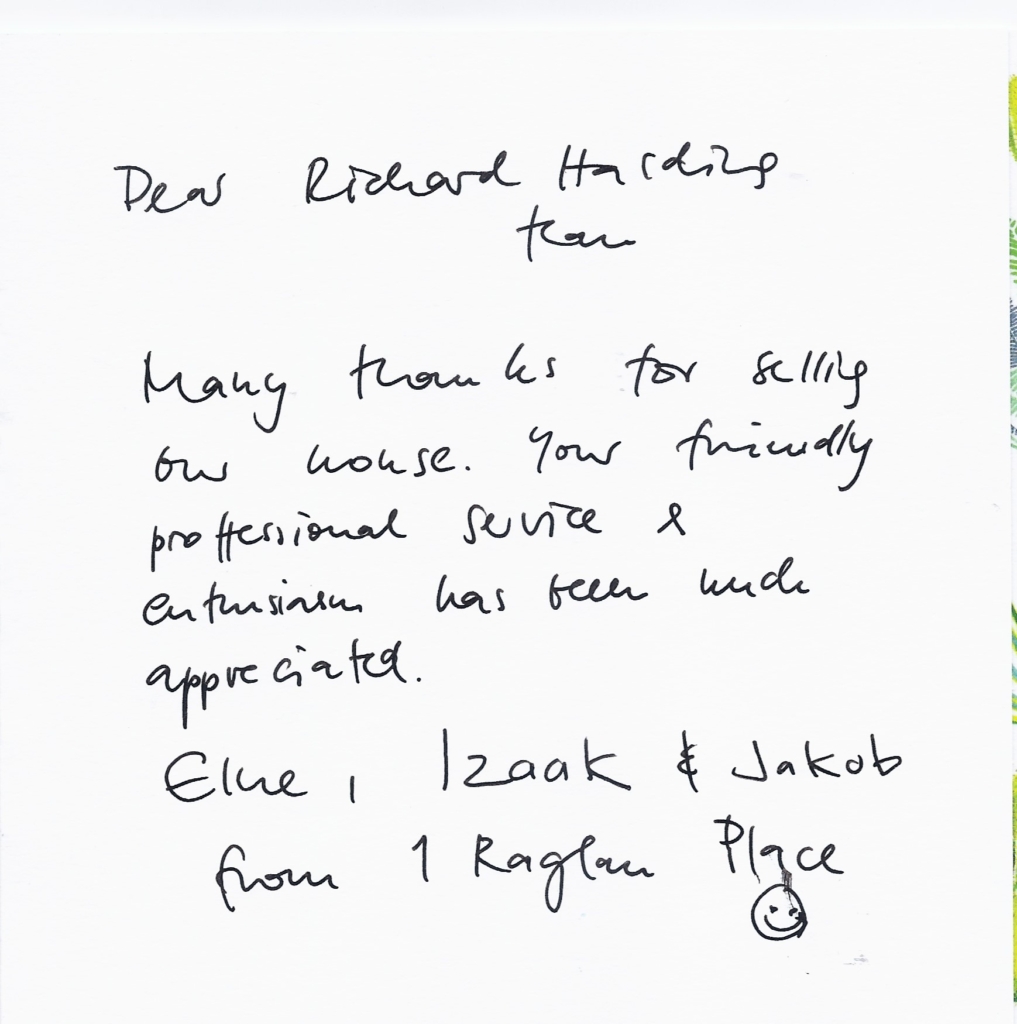 Dear Richard Harding
team
Many thanks for selling
our house. Your friendly
proffessional service &
enthusiasm has been much
appreciated.
Elke, Izaak & Jakob
from 1 Raglan Place